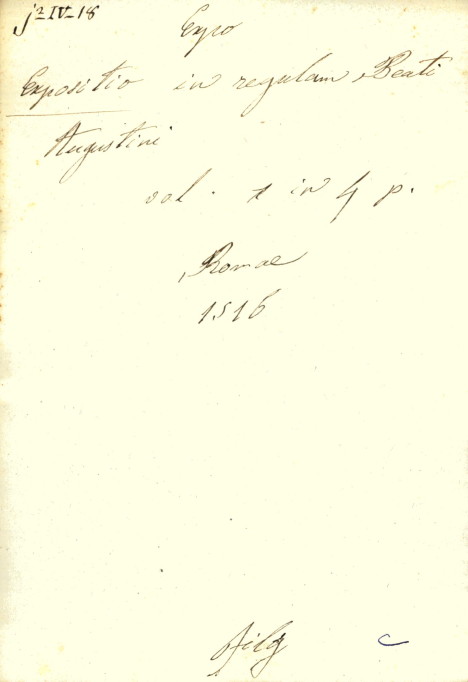 j² IV-18
Expo
Expositio in regulam Beati
Augustini
vol. 1 in 4 p.
Romae
1516
C